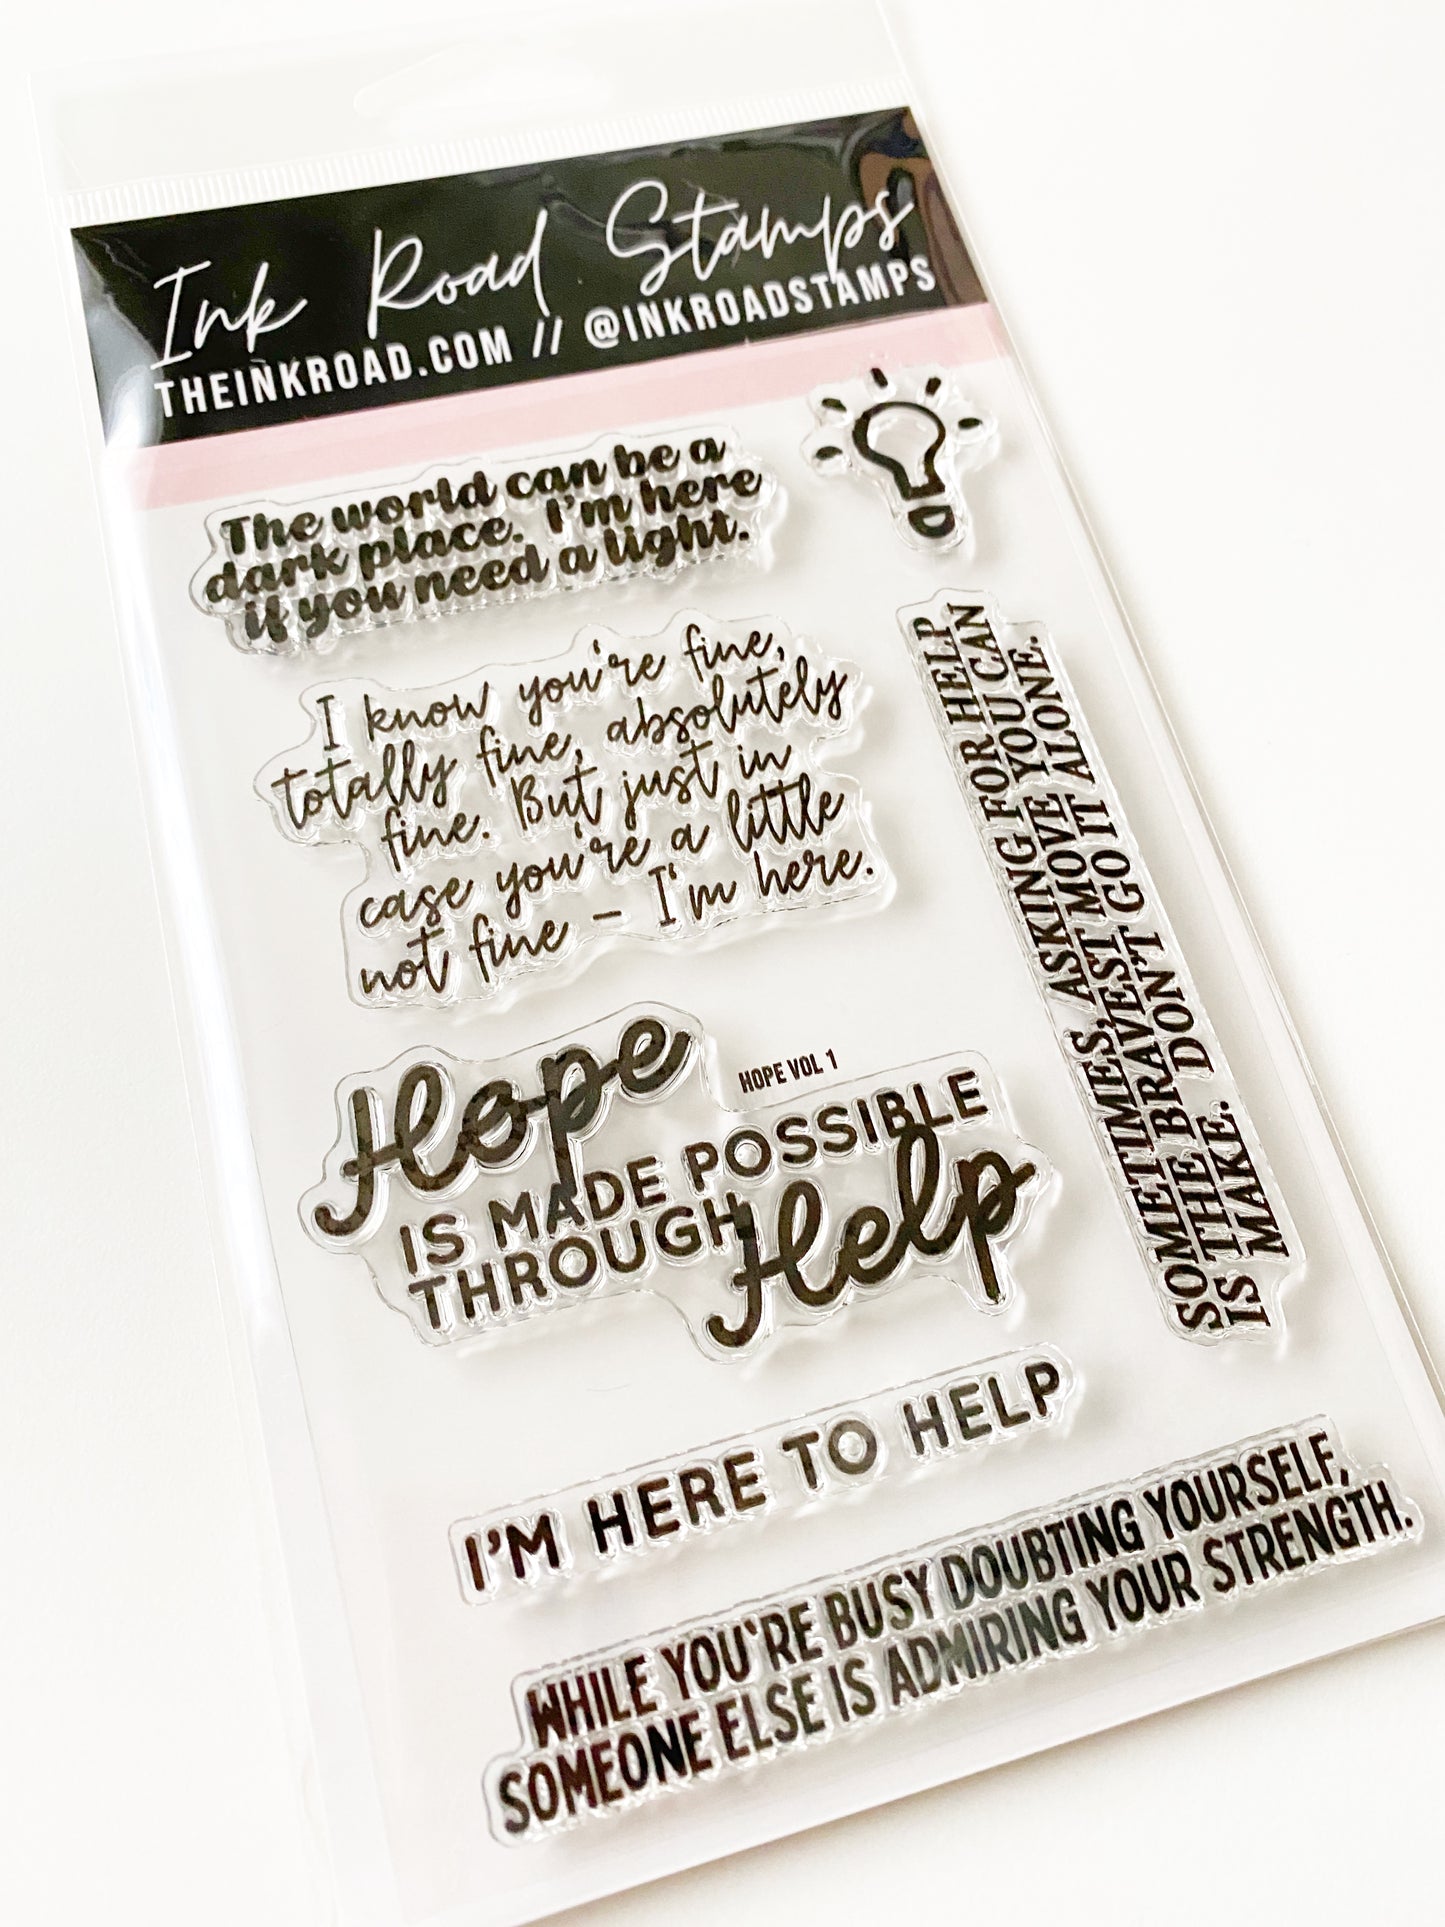 Ink Road Stamps
THEINKROAD.COM // @INKROADSTAMPS
The world can be a
dark place. I'm here
if you need a light.
I know you're fine,
totally fine, absolutely
fine. But just in
case you're a little
not fine – I'm here.
SOMETIMES, ASKING FOR HELP
IS THE BRAVEST MOVE YOU CAN
MAKE. DON'T GO IT ALONE.
HOPE VOL 1
Hope
IS MADE POSSIBLE
THROUGH Help
I'M HERE TO HELP
WHILE YOU'RE BUSY DOUBTING YOURSELF,
SOMEONE ELSE IS ADMIRING YOUR STRENGTH.